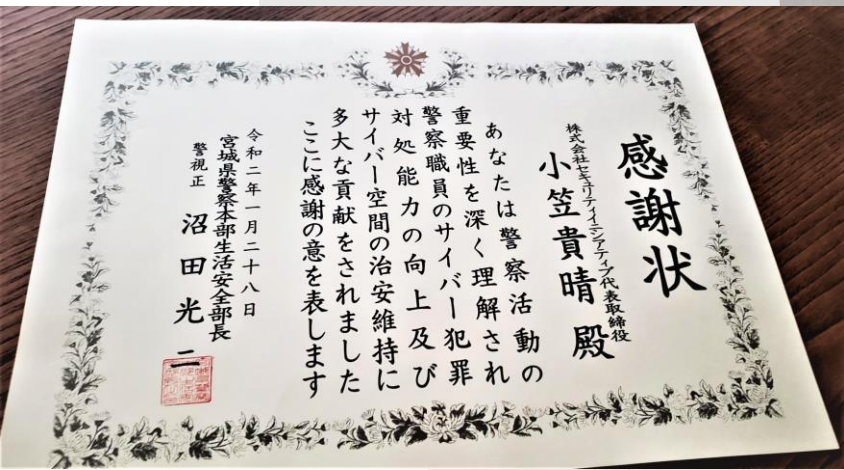 感謝状
株式会社セキュリティイニシアティブ代表取締役
小笠貴晴 殿
あなたは警察活動の
重要性を深く理解され
警察職員のサイバー犯罪
対処能力の向上及び
サイバー空間の治安維持に
多大な貢献をされました
ここに感謝の意を表します
令和二年一月二十八日
宮城県警察本部生活安全部長
警視正 沼田光二